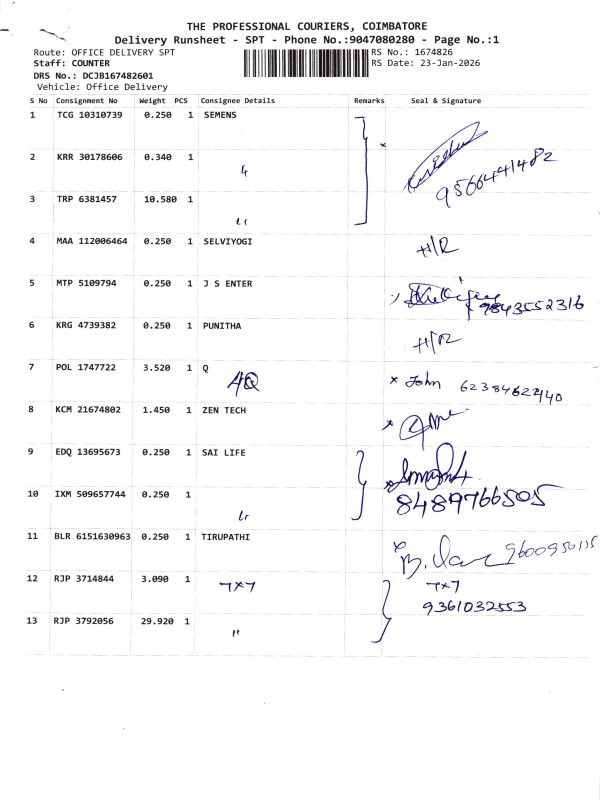 THE PROFESSIONAL COURIERS, COIMBATORE
Delivery Runsheet - SPT - Phone No.:9047080280 - Page No.:1
Route: OFFICE DELIVERY SPT RS No.: 1674826
Staff: COUNTER RS Date: 23-Jan-2026
DRS No.: DCJB167482601
Vehicle: Office Delivery
S No Consignment No Weight PCS Consignee Details Remarks Seal & Signature
1 TCG 10310739 0.250 1 SEMENS
2 KRR 30178606 0.340 1 〃
9566441482
3 TRP 6381457 10.580 1 〃
4 MAA 112006464 0.250 1 SELVIYOGI H/R
5 MTP 5109794 0.250 1 J S ENTER
9843552316
6 KRG 4739382 0.250 1 PUNITHA H/R
7 POL 1747722 3.520 1 Q
AQ x John
8 KCM 21674802 1.450 1 ZEN TECH
9 EDQ 13695673 0.250 1 SAI LIFE
10 IXM 509657744 0.250 1 〃 8489766505
11 BLR 6151630963 0.250 1 TIRUPATHI
9600950115
12 RJP 3714844 3.090 1 7x7 7x7
9361032553
13 RJP 3792056 29.920 1 〃